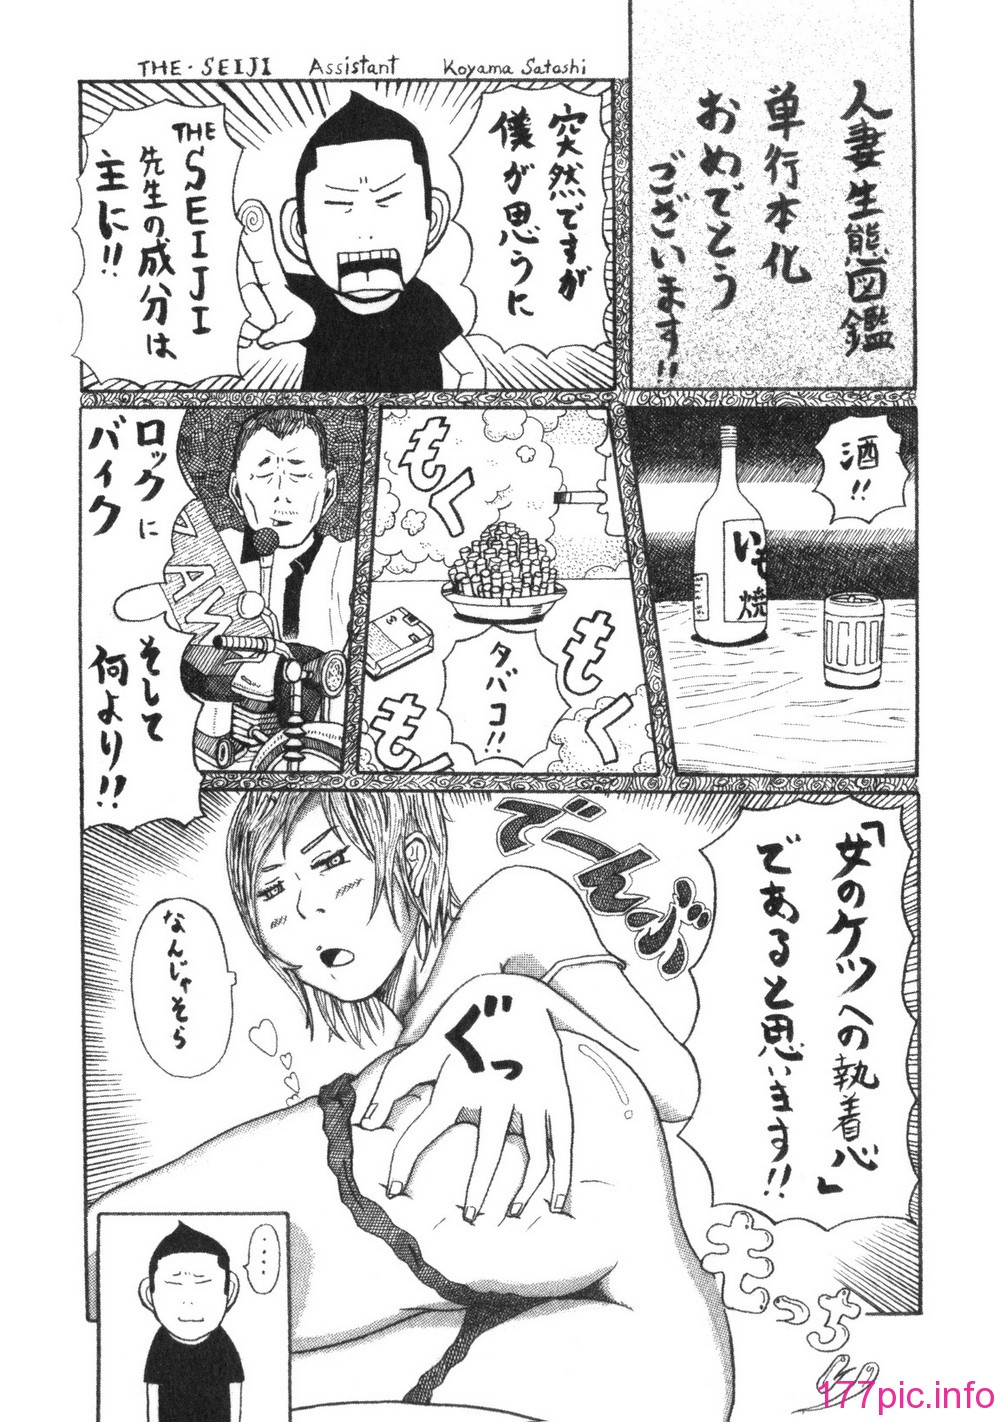 THE・SEIJI Assistant Koyama Satoshi
人妻生態図鑑
単行本化
おめでとう
ございます!!
突然ですが
僕が思うに
THE
SEIJI
先生の成分は
主に!!
酒!!
いも
焼
タバコ!!
もく
もく
もく
ロックに
バイク
そして
何より!!
「女のケツへの執着心」
であると思います!!
でーんッ
なんじゃそら
ぐっ
もっちり
‥‥
177pic.info